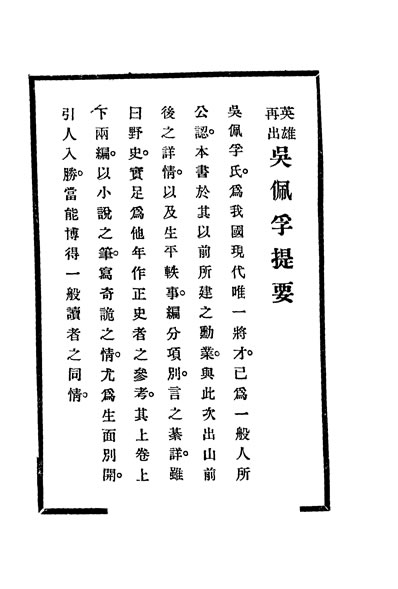 英雄再出 吳佩孚提要
吳佩孚氏。為我國現代唯一將才。已為一般人所
公認。本書於其以前所建之勳業。與此次出山前
後之詳情。以及生平軼事。編分項別。言之綦詳。雖
曰野史。實足為他年作正史者之參考。其上卷上
下兩編。以小說之筆。寫奇詭之情。尤為生面別開。
引人入勝。當能博得一般讀者之同情。